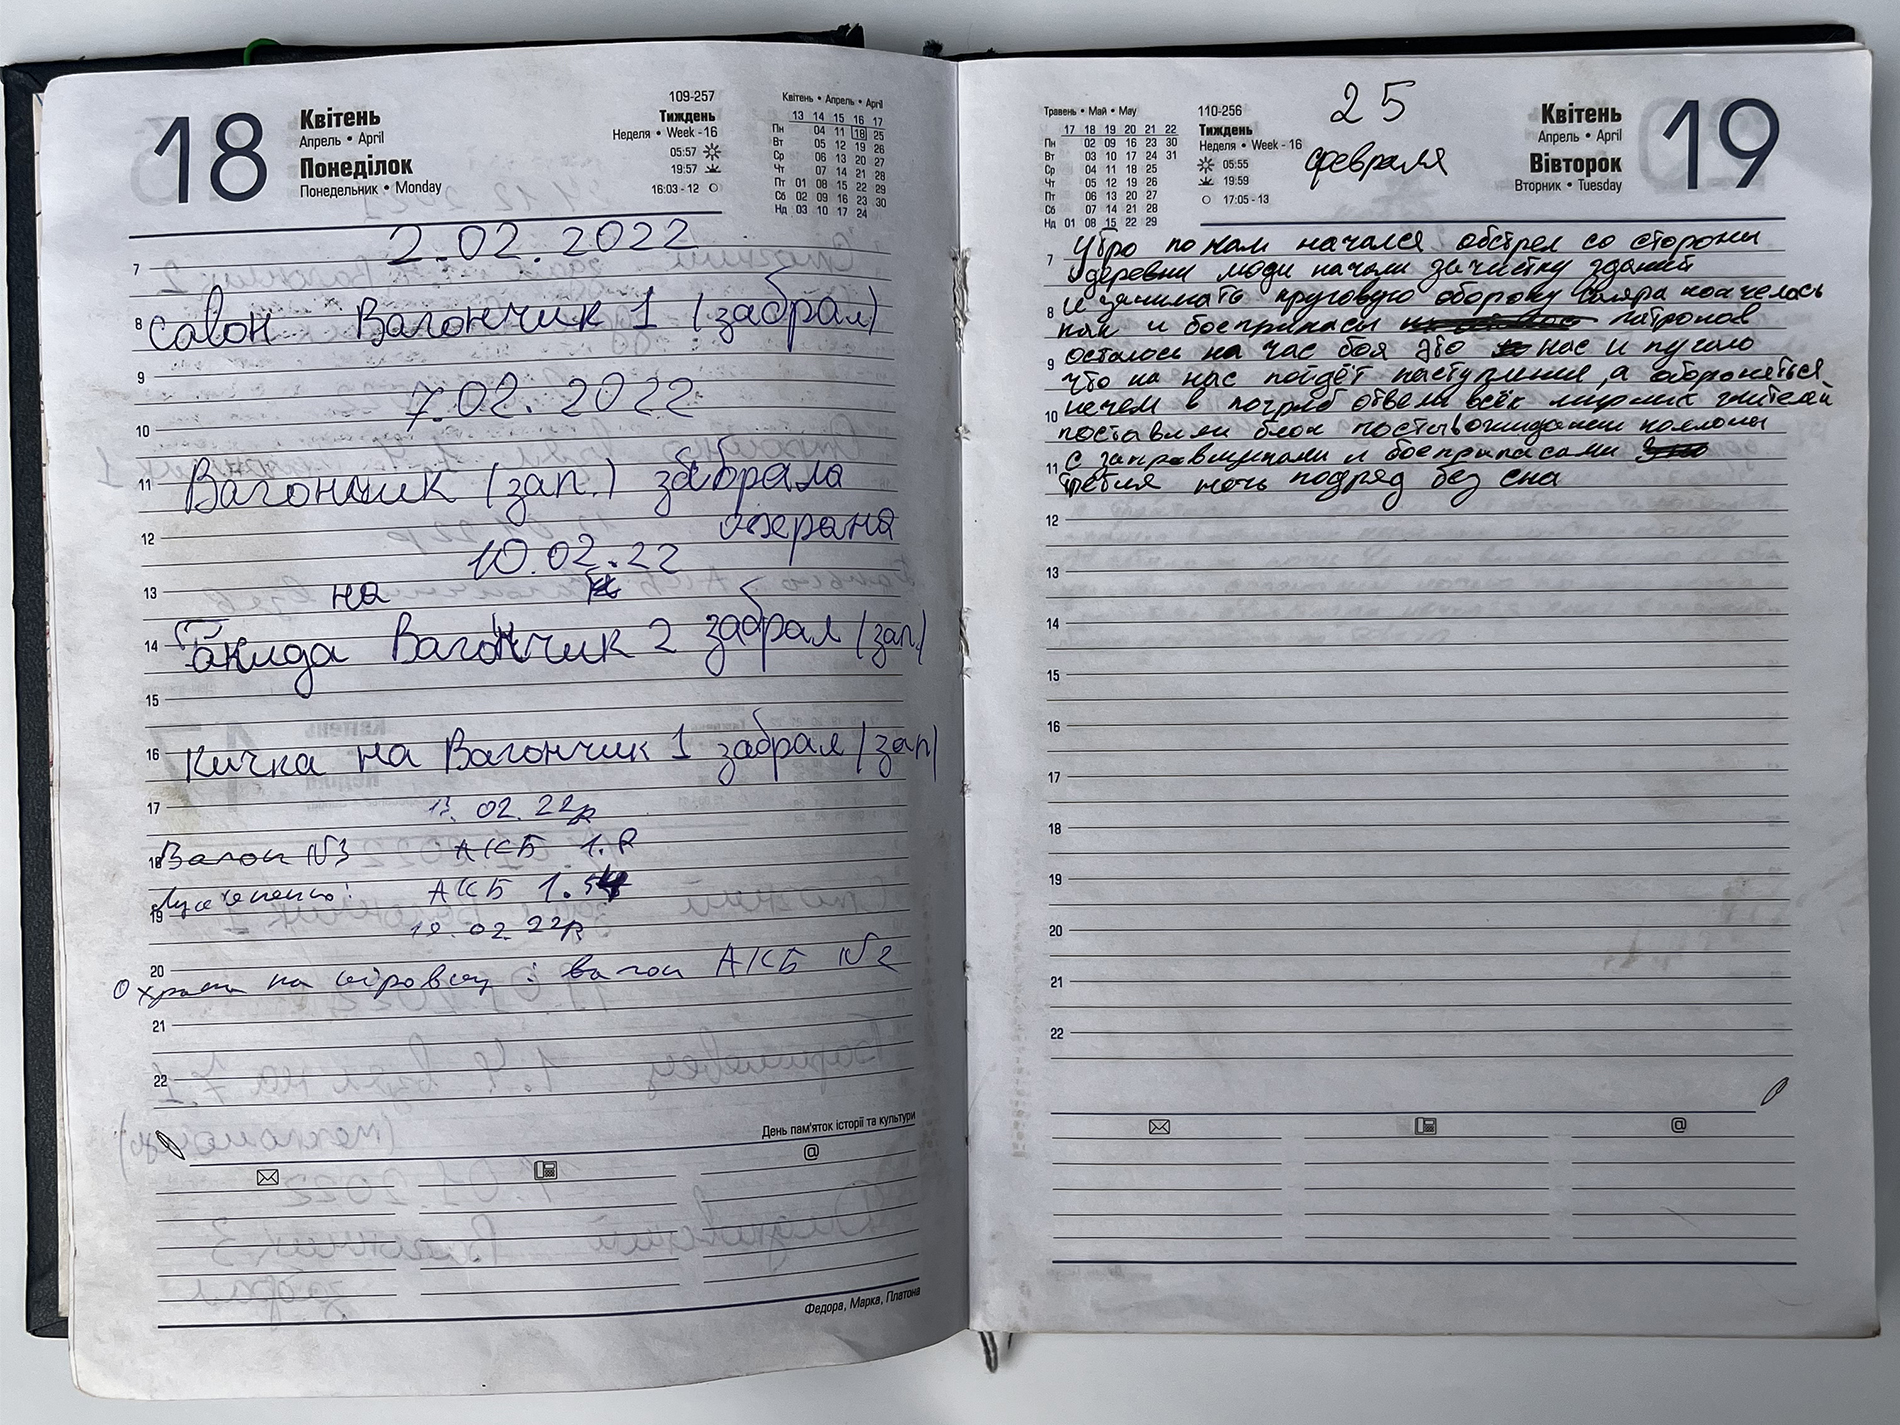 18
Квітень
Апрель • April
Понеділок
Понедельник • Monday
109-257
Тиждень
Неделя • Week - 16
05:57
19:57
16:03 - 12
Квітень • Апрель • April
13 14 15 16 17
Пн 04 11 18 25
Вт 05 12 19 26
Ср 06 13 20 27
Чт 07 14 21 28
Пт 01 08 15 22 29
Сб 02 09 16 23 30
Нд 03 10 17 24
2.02.2022
7
8 Савон Вагончик 1 (забрал)
9
7.02.2022
10
11 Вагончик (зап.) забрала
охрана
12
10.02.22
13 на
14 Вагончик 2 забрал (зап.)
15
16 Кичка на Вагончик 1 забрал (зап)
17 .02.22р
18 Вагон №3 АКБ 1.8
19 АКБ 1.
.02.22р
20
Охрана на : вагон АКБ №2
21
22
День пам'яток історії та культури
@
Федора, Марка, Платона
Травень • Май • May
17 18 19 20 21 22
Пн 02 09 16 23 30
Вт 03 10 17 24 31
Ср 04 11 18 25
Чт 05 12 19 26
Пт 06 13 20 27
Сб 07 14 21 28
Нд 01 08 15 22 29
110-256
Тиждень
Неделя • Week - 16
05:55
19:59
17:05 - 13
25
февраля
Квітень
Апрель • April
Вівторок
Вторник • Tuesday
19
Утро по нам начался обстрел со стороны
7 деревни люди начали зачистку зданий
8 и занимать круговую оборону соляра кончелась
как и боеприпасы патронов
9 осталось на час боя это нас и пугало
что на нас пойдёт наступление, а обороняться
10 нечем в погреб отвели всех мирних жителей
поставили блок посты в ожидании колоны
11 с заправщиками и боеприпасами
третия ночь подряд без сна
12
13
14
15
16
17
18
19
20
21
22
@